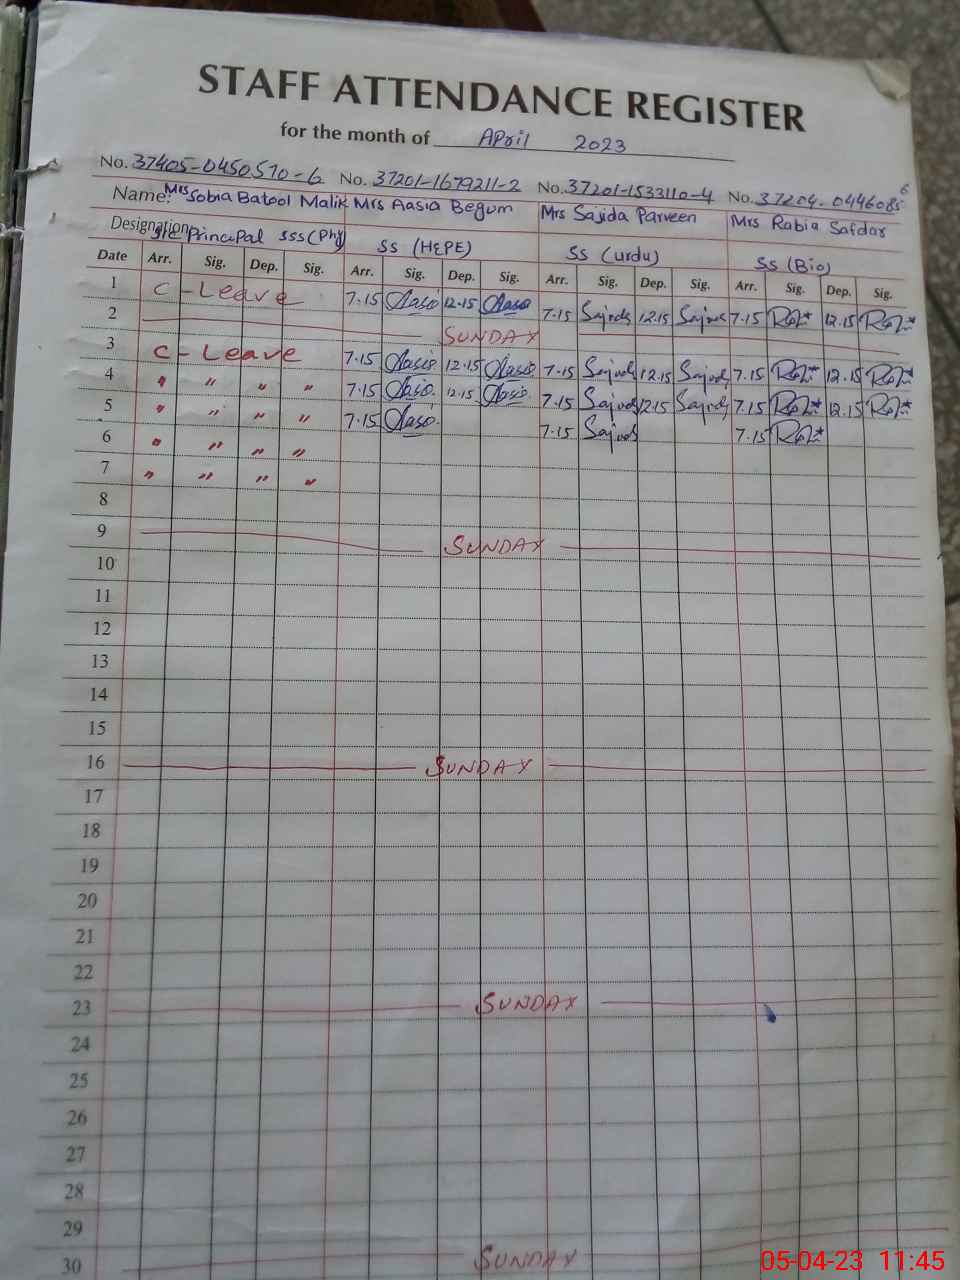 STAFF ATTENDANCE REGISTER
for the month of April 2023
No. 37405-0450570-6 No. 37201-1679211-2 No. 37201-1533110-4 No. 37204-0446085-6
Name: Mrs Sobia Batool Malik Mrs Aasia Begum Mrs Sajida Parveen Mrs Rabia Safdar
Designation I/C Principal SSS (Phy) SS (H&PE) SS (urdu) SS (Bio)
Date Arr. Sig. Dep. Sig. Arr. Sig. Dep. Sig. Arr. Sig. Dep. Sig. Arr. Sig. Dep. Sig.
1 C-Leave 7.15 Aasia 12.15 Aasia 7.15 Sajida 12.15 Sajida 7.15 12.15
2 SUNDAY
3 C-Leave 7.15 Aasia 12.15 Aasia 7.15 Sajida 12.15 Sajida 7.15 12.15
4 " " " " 7.15 Aasia 12.15 Aasia 7.15 Sajida 12.15 Sajida 7.15 12.15
5 " " " " 7.15 Aasia 7.15 Sajida 7.15
6 " " " "
7 " " " "
8
9 SUNDAY
10
11
12
13
14
15
16 SUNDAY
17
18
19
20
21
22
23 SUNDAY
24
25
26
27
28
29
30 SUNDAY
05-04-23 11:45